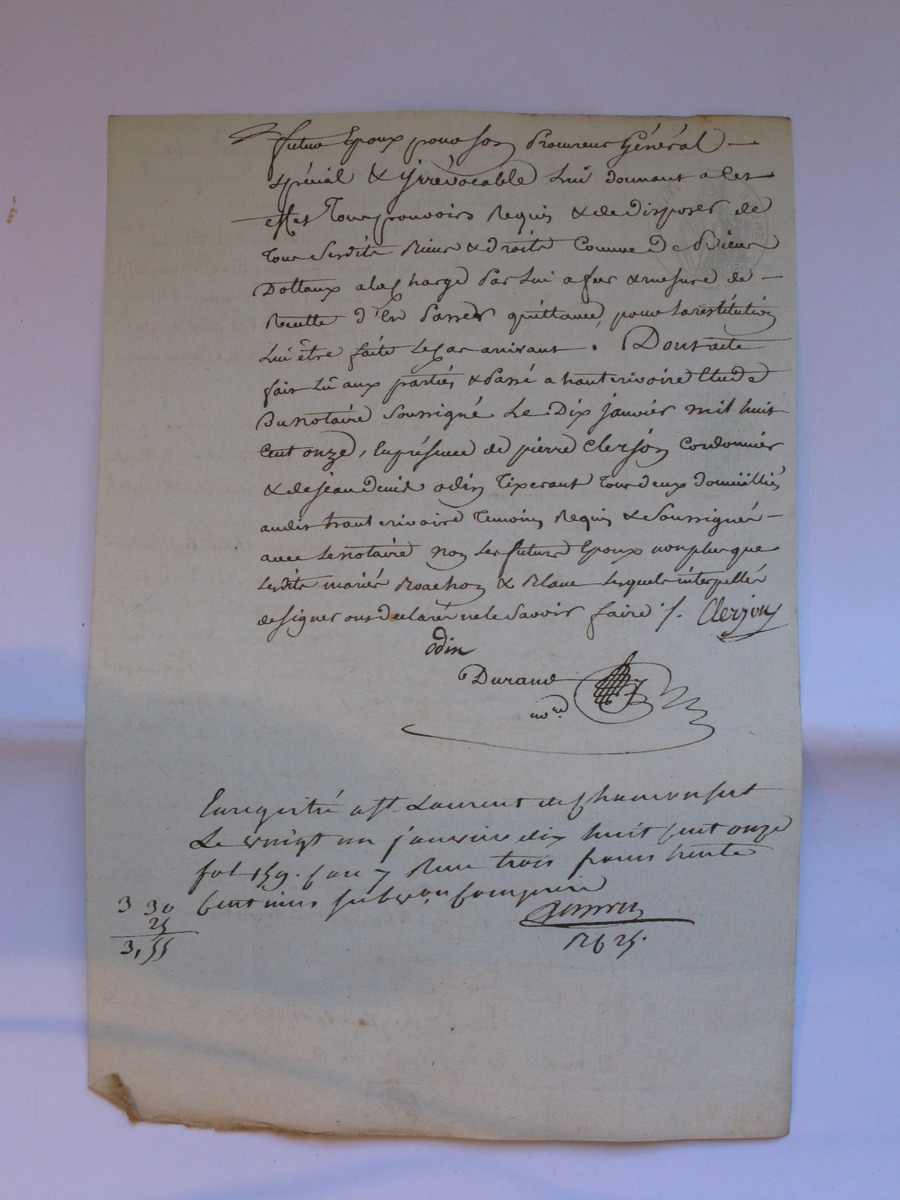 futur Epoux pour son Procureur Général
Spécial & Yrrévocable Lui donnant a Cet
effet Tous pouvoirs Requis & de Disposer de
Tous Sesdits Biens & droits Comme De Biens
Dottaux a la Charge Par Lui a fur & mesure de
Recette d'En Passer quittance, pour la restitution
Lui être faite Le Cas arrivant. Dont acte
fait Lû aux parties & Passé a hautrivoire Etude
Du notaire Soussigné Le Dix janvier mil huit
Cent onze, En présence de pierre Clerjon Cordonnier
& de jean denis odin Tixerant Tous deux domiciliés
audit hautrivoire Temoins Requis & Soussignés
avec Le notaire non Les futurs Epoux nonplus que
Lesdits mariés Rnachon & Blanc Lesquels interpellés
de signer ont declarés ne le Savoir faire ·/. Clerjon
odin
Durand
no.re
Enregistré a St. Laurent de Chamousset
Le vingt un janvier dix huit cent onze
fol 159. Case 7 Reçu trois francs trente
Centimes subvon. Comprise
3 30
25
3,55
R 6 25.